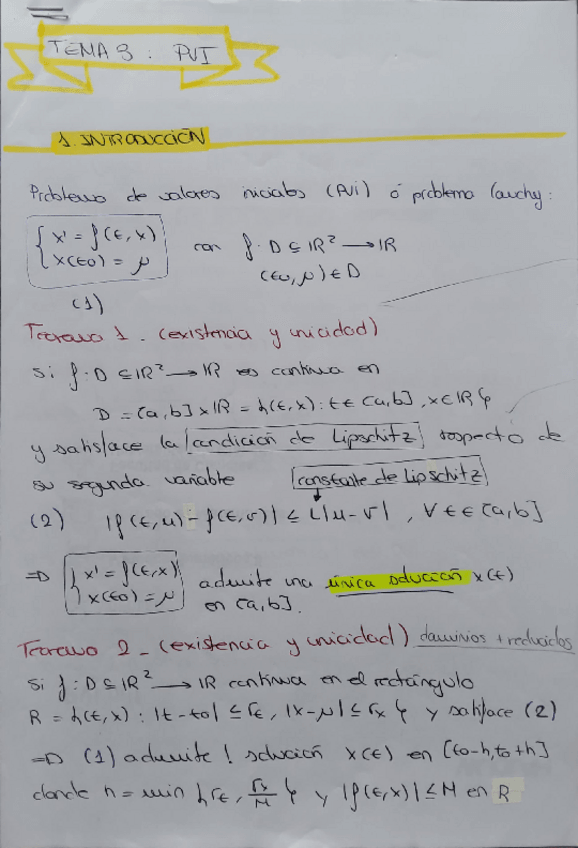 TEMA 3: PVI
1. INTRODUCCIÓN
Problema de valores iniciales (PVI) ó problema Cauchy:
{ x' = f(t, x)
x(t0) = μ
con f: D ⊆ IR² → IR
(t0, μ) ∈ D
(1)
Teorema 1. (existencia y unicidad)
Si f: D ⊆ IR² → IR es continua en
D = [a, b] x IR = {(t, x) : t ∈ [a, b], x ∈ IR}
y satisface la condición de Lipschitz respecto de
su segunda variable constante de Lipschitz
(2) |f(t, u) - f(t, v)| ≤ L|u - v|, ∀ t ∈ [a, b]
=> { x' = f(t, x)
x(t0) = μ
admite una única solución x(t)
en [a, b].
Teorema 2 - (existencia y unicidad) dominios + reducidos
Si f: D ⊆ IR² → IR continua en el rectángulo
R = {(t, x) : |t - t0| ≤ rt, |x - μ| ≤ rx} y satisface (2)
=> (1) admite ! solución x(t) en [t0-h, t0+h]
donde h = min {rt, rx/M} y |f(t, x)| ≤ M en R